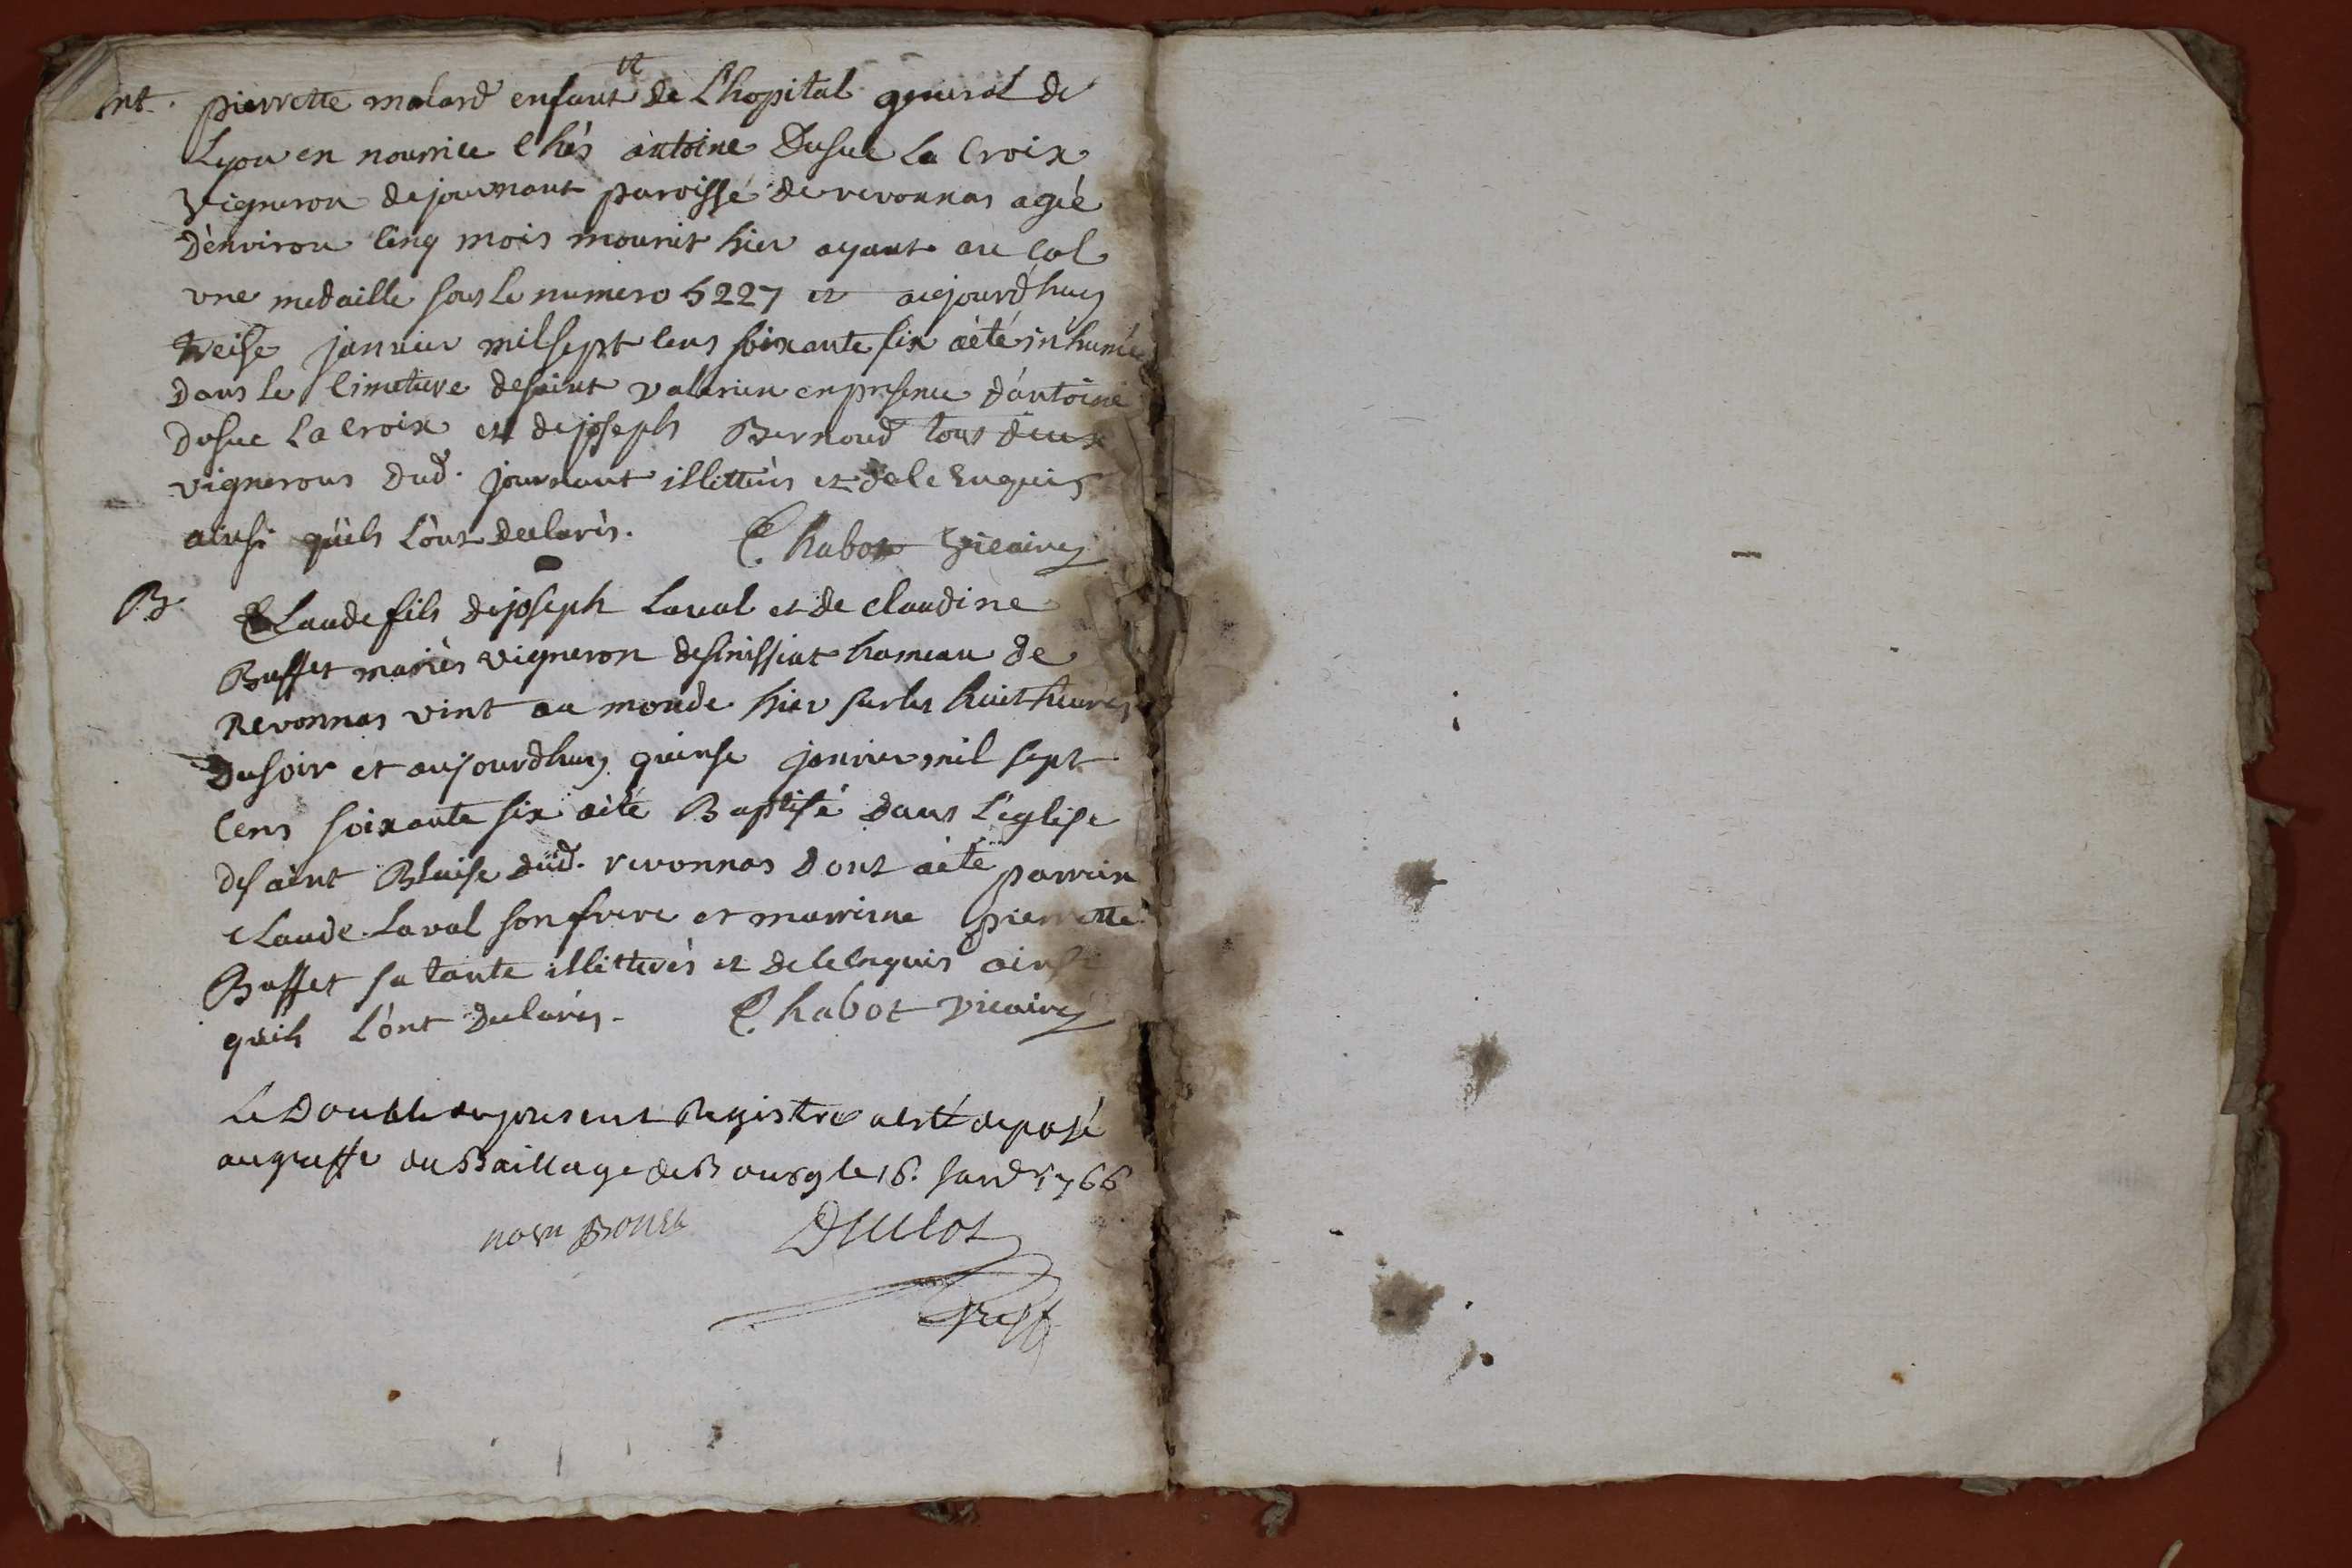 Ent. pierrette malard enfant de L'hopital general de
Lyon en nourrice chés antoine Dusuc La Croix
vigneron de journant paroisse de revonnas agée
D'environ cinq mois mourut hier ayant au col
une medaille sous le numero 5227 et aujourd'huy
treise janvier mil sept cens soixante six a été inhumée
Dans le cimetiere de saint valerien en presence d'antoine
Dusuc La croix et de joseph Bernoud tous deux
vignerons dud. journant illitterés et de ce enquis
ainsi qu'ils L'ont declarés. Chabot vicaire
B. Claude fils de joseph Laval et de claudine
Buffet mariés vigneron de sinissiat hameau de
Revonnas vint au monde hier sur les huit heures
Du soir et aujourdhuy quinse janvier mil sept
cens soixante six a été Baptisé dans L'eglise
de saint Blaise dud. revonnas dont a été parrain
claude Laval son frere et marrine pierrette
Buffet sa tante illitterés et de ce enquis ainsi
qu'ils L'ont declarés. Chabot vicaire
Le Double du present Registre a esté deposé
au greffe du Baillage de Bourg le 16. 1766